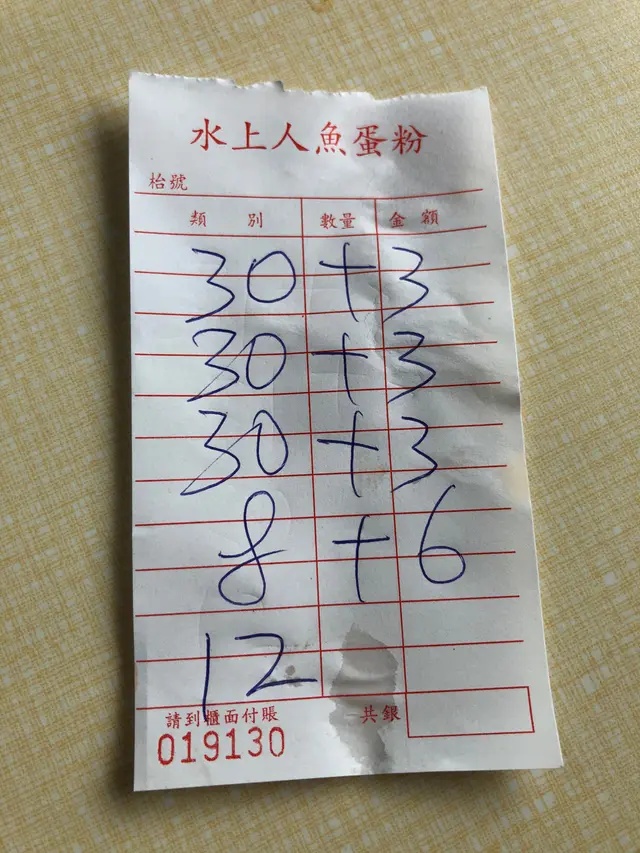 水上人魚蛋粉
枱號
類別 數量 金額
30 + 3
30 + 3
30 + 3
8 + 6
12
請到櫃面付賬 共銀
019130